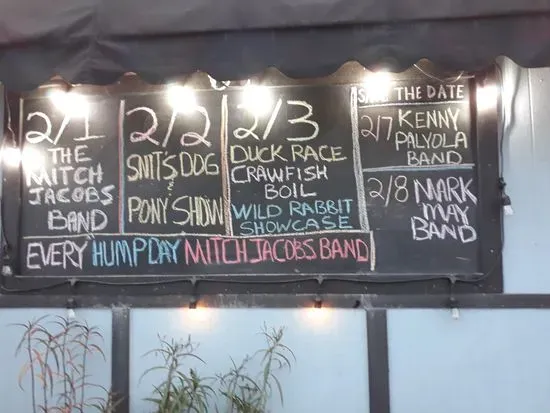 2/1
THE
MITCH
JACOBS
BAND
2/2
SNIT'S DOG
&
PONY SHOW
2/3
DUCK RACE
CRAWFISH
BOIL
WILD RABBIT
SHOWCASE
SAVE THE DATE
2/7 KENNY
PALYOLA
BAND
2/8 MARK
MAY
BAND
EVERY HUMPDAY MITCH JACOBS BAND